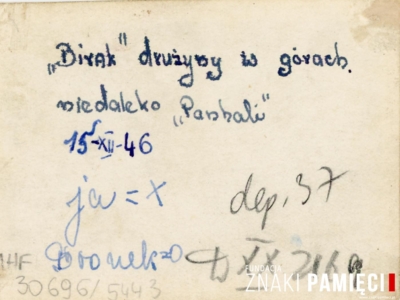 „Birak" drużyny w górach.
niedaleko „Panhali"
15-XII-46
ja = x
dep. 37
Bronek=0
D XX
HF
30696/5443
FUNDACJA
ZNAKI PAMIĘCI